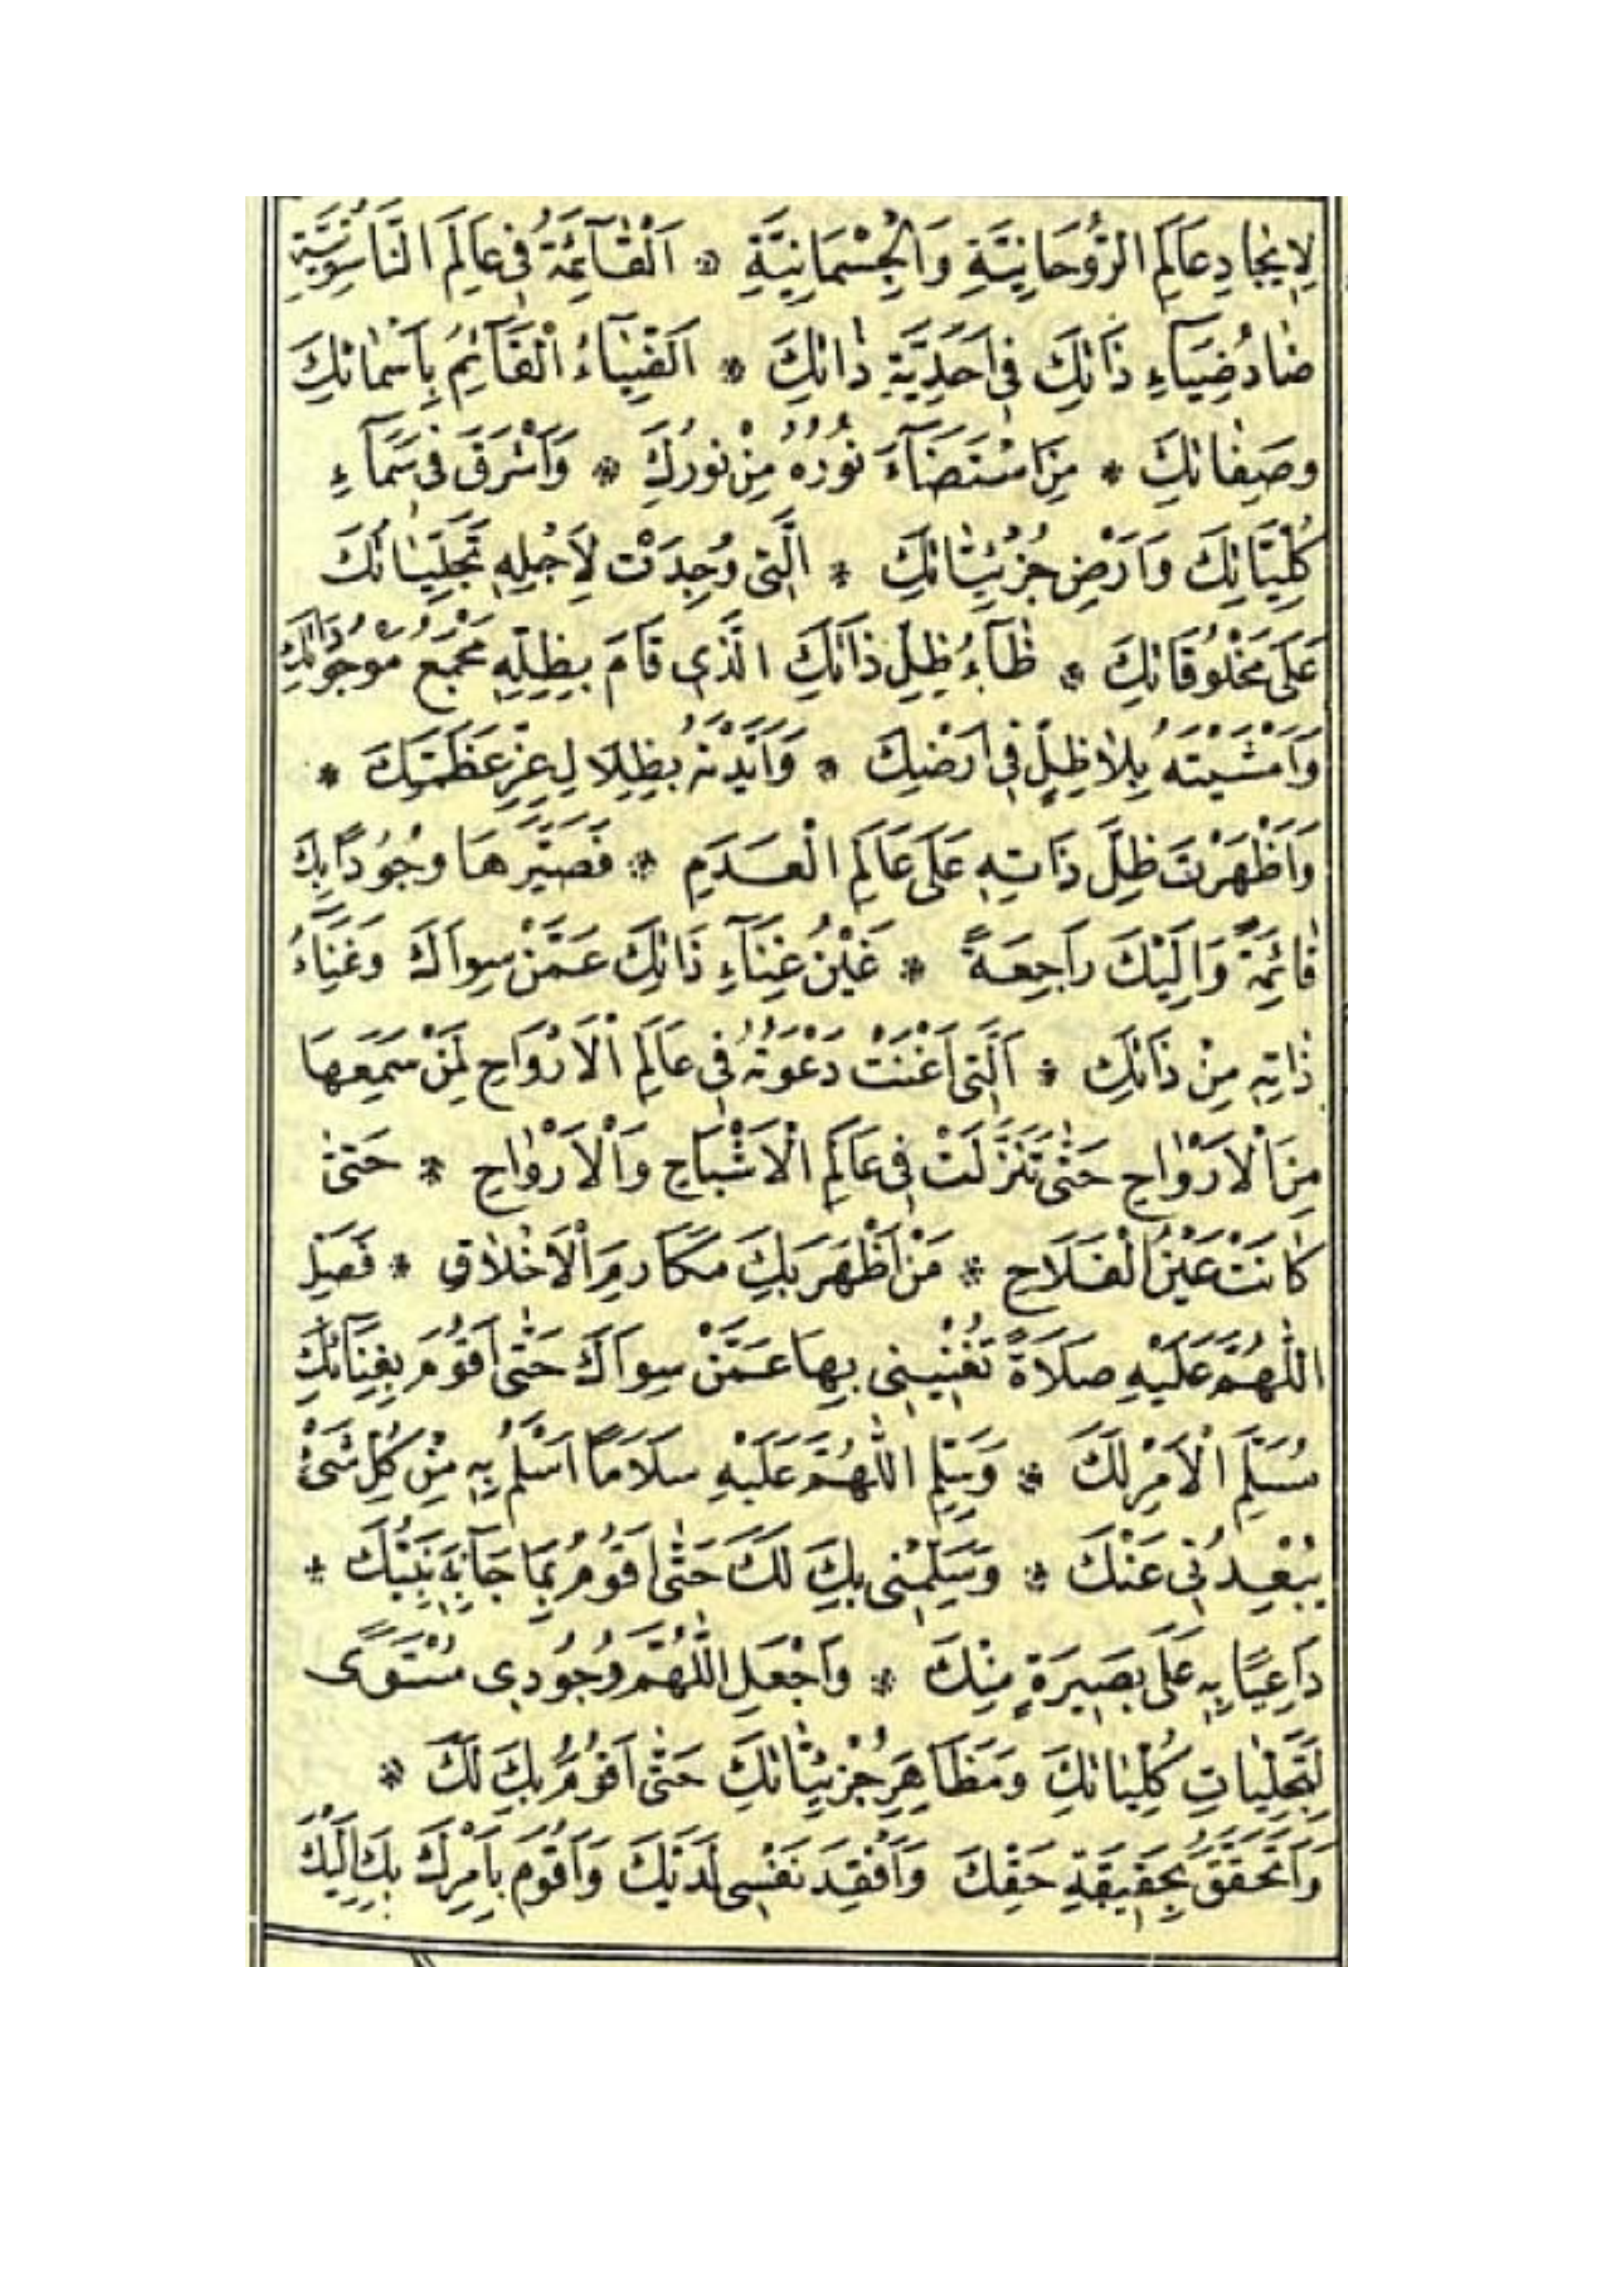 لِاِيْجَادِ عَالَمِ الرُّوحَانِيَّةِ وَالْجِسْمَانِيَّةِ * اَلْقَآئِمَةُ فِى عَالَمِ النَّاسُوتِيَّةِ
ضَادُ ضِيَآءِ ذَاتِكَ فِى اَحَدِيَّةِ ذَاتِكَ * اَلضِّيَاءُ الْقَآئِمُ بِاَسْمَائِكَ
وَصِفَاتِكَ * مِنَ اسْتَضَآءَ نُورُهُ مِنْ نُورِكَ * وَاَشْرَقَ فِى سَمَآءِ
كُلِّيَّاتِكَ وَاَرْضِ جُزْئِيَّاتِكَ * الَّتِى وُجِدَتْ لِاَجْلِهِ تَجَلِّيَاتُكَ
عَلَى مَخْلُوقَاتِكَ * ظَآءُ ظِلِّ ذَاتِكَ الَّذِى قَامَ بِظِلِّهِ مَجْمَعُ مَوْجُودَاتِكَ
وَاَمْشَيْتَهُ بِلَا ظِلٍّ فِى اَرْضِكَ * وَاَيَّدْتَهُ بِظِلَالِ عِزِّ عَظَمَتِكَ *
وَاَظْهَرْتَ ظِلَّ ذَاتِهِ عَلَى عَالَمِ الْعَدَمِ * فَصَيَّرَهَا وُجُودًا بِكَ
قَائِمَةً وَاِلَيْكَ رَاجِعَةً * غَيْنُ غِنَآءِ ذَاتِكَ عَمَّنْ سِوَاكَ وَغَنَآءُ
ذَاتِهِ مِنْ ذَاتِكَ * اَلَّتِى اَغْنَتْ دَعْوَتُهُ فِى عَالَمِ الْاَرْوَاحِ لِمَنْ سَمِعَهَا
مِنَ الْاَرْوَاحِ حَتّٰى تَنَزَّلَتْ فِى عَالَمِ الْاَشْبَاحِ وَالْاَرْوَاحِ * حَتّٰى
كَانَتْ عَيْنُ الْفَلَاحِ * مَنْ اَظْهَرَ بِكَ مَكَارِمَ الْاَخْلَاقِ * فَصَلِّ
اللّٰهُمَّ عَلَيْهِ صَلَاةً تُغْنِيْنِى بِهَا عَمَّنْ سِوَاكَ حَتّٰى اَقُومَ بِغِنَائِكَ
مُسَلِّمَ الْاَمْرِ لَكَ * وَسَلِّمِ اللّٰهُمَّ عَلَيْهِ سَلَامًا اَسْلَمُ بِهِ مِنْ كُلِّ شَىْءٍ
يُبْعِدُنِى عَنْكَ * وَسَلِّمْنِى بِكَ لَكَ حَتّٰى اَقُومَ بِمَا جَآءَ بِهِ نَبِيُّكَ *
دَاعِيًا بِهِ عَلَى بَصِيرَةٍ مِنْكَ * وَاجْعَلِ اللّٰهُمَّ وُجُودِى مُسْتَوًى
لِتَجَلِّيَاتِ كُلِّيَاتِكَ وَمَظَاهِرِ جُزْئِيَّاتِكَ حَتّٰى اَقُومَ بِكَ لَكَ *
وَاَتَحَقَّقَ بِحَقِيقَةِ حَقِّكَ وَاَفْقِدَ نَفْسِى لَدَيْكَ وَاَقُومَ بِاَمْرِكَ بِكَ اِلَيْكَ